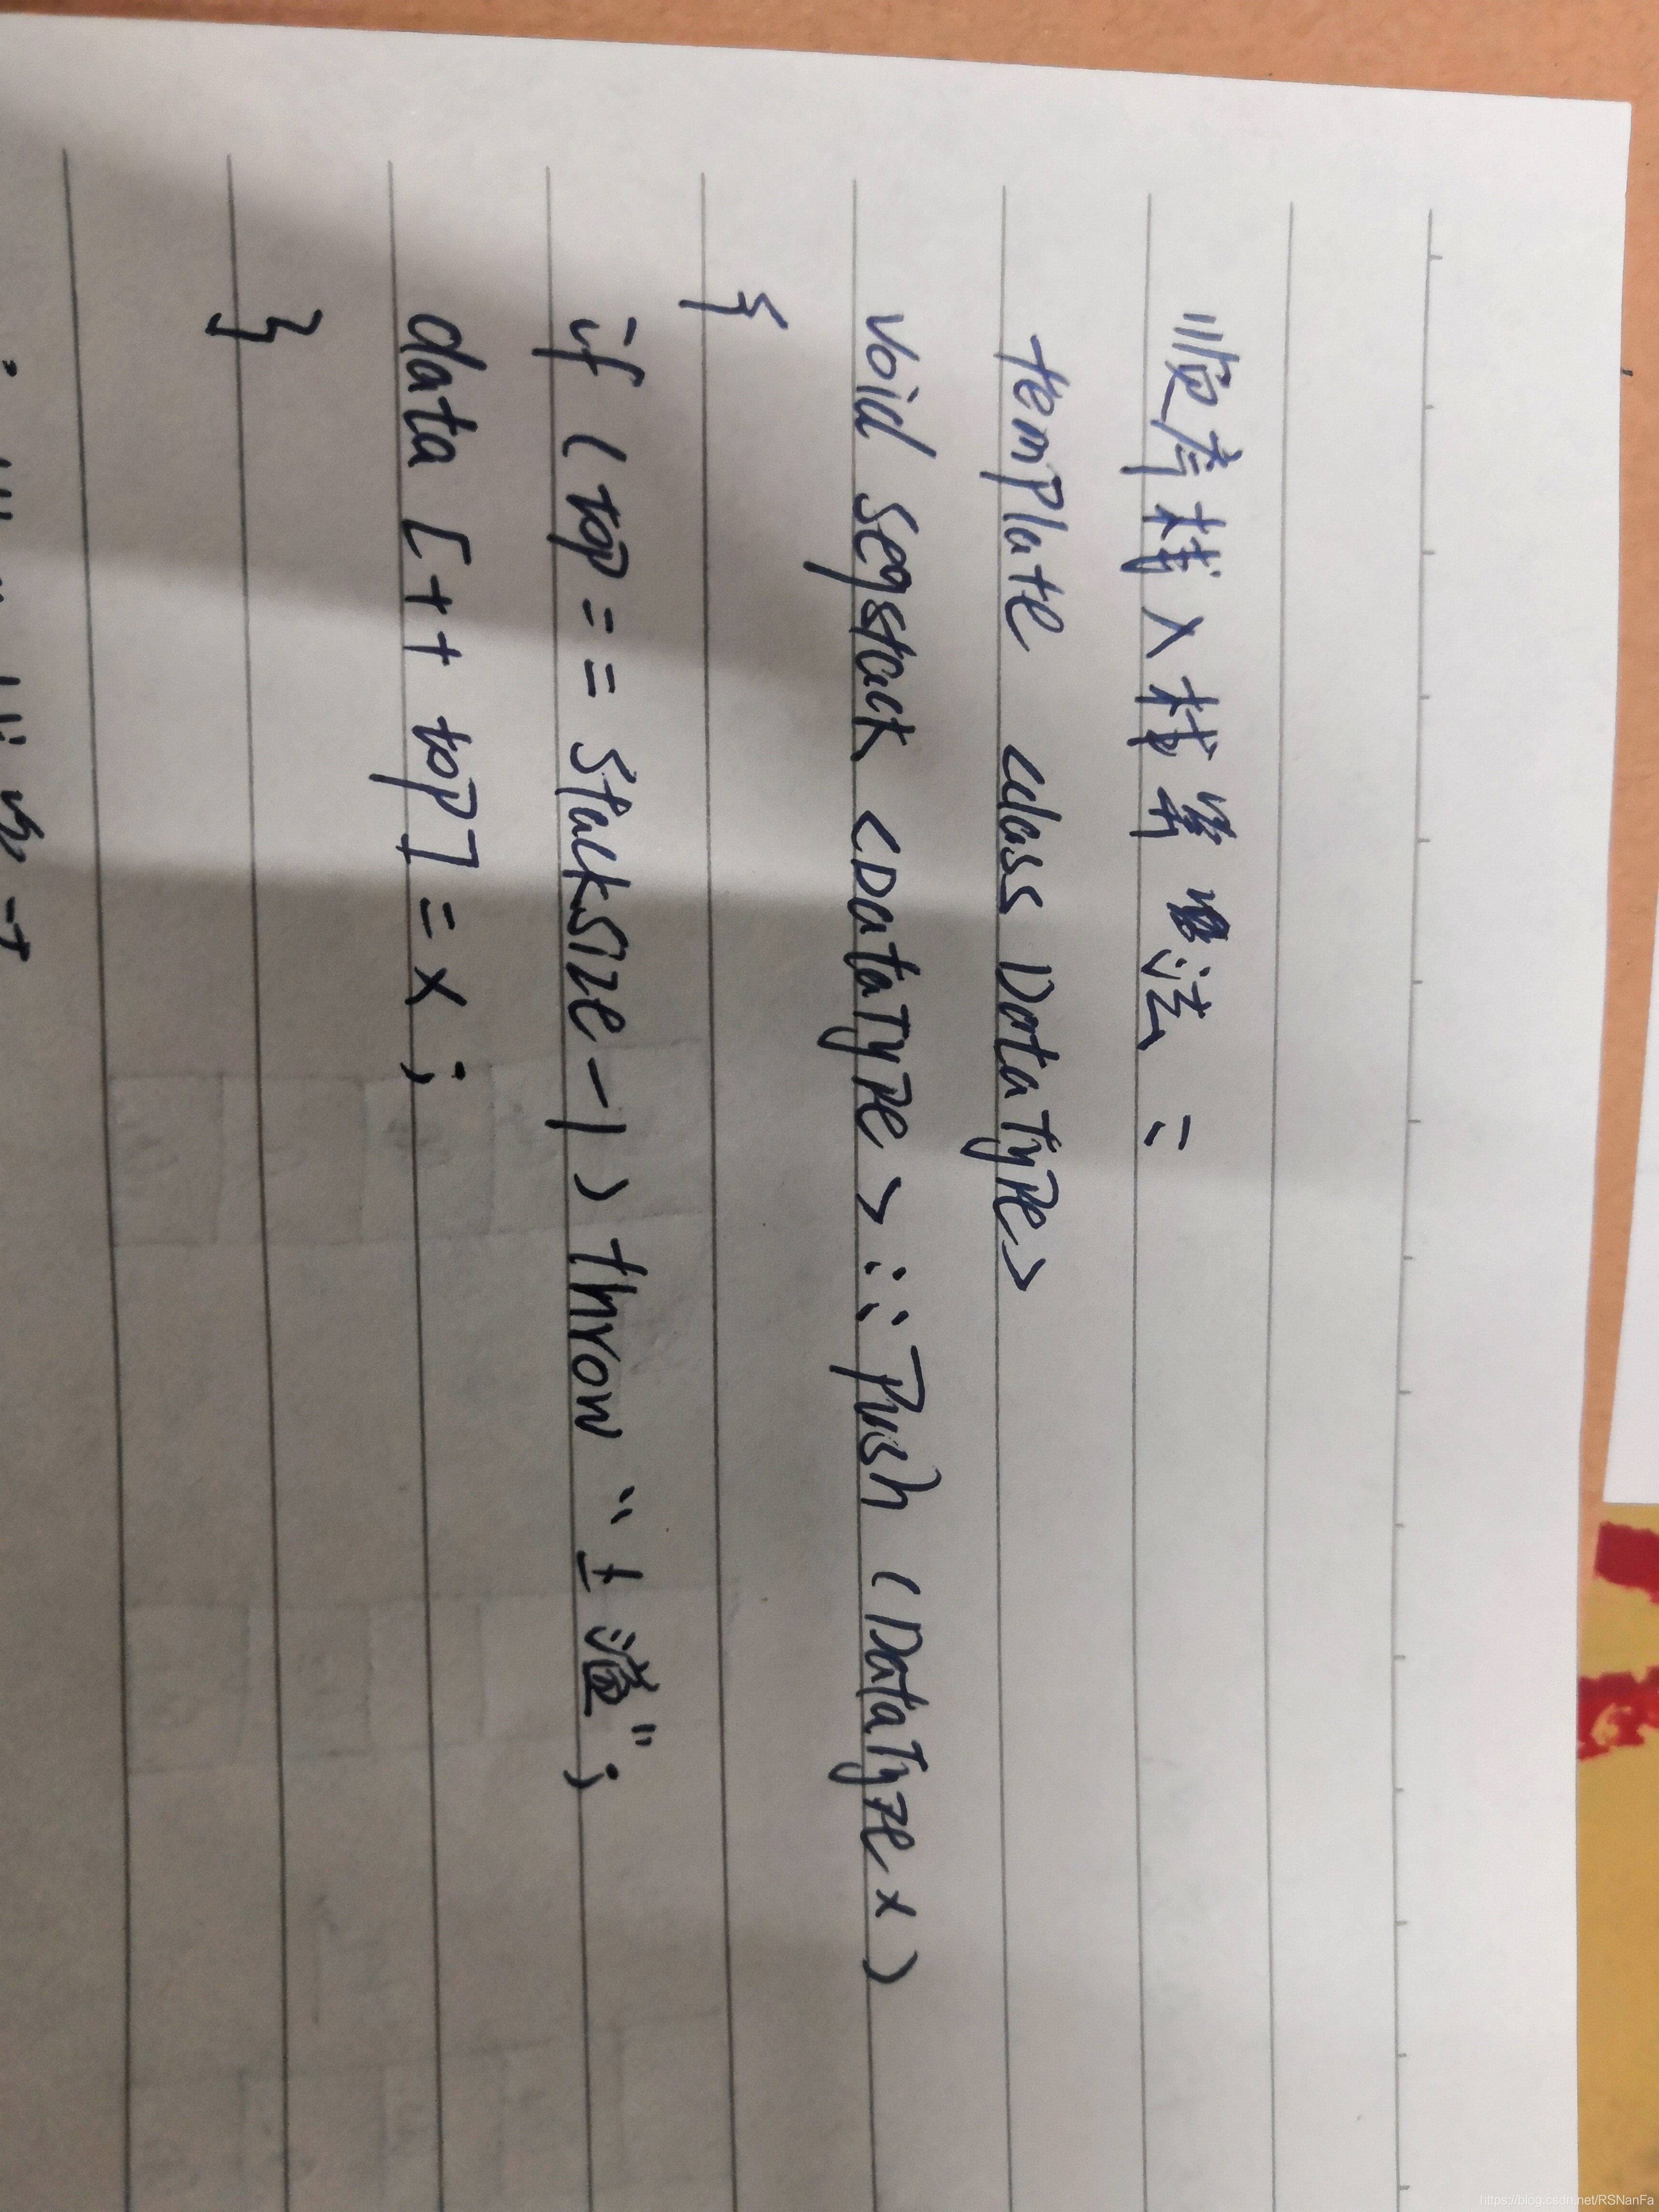 顺序栈入栈算法:
template <class DataType>
void seqstack <DataType> :: Push (DataType x)
{
if (top == Stacksize-1) throw “上溢”;
data [++ top] = x;
}
https://blog.csdn.net/RSNanFa